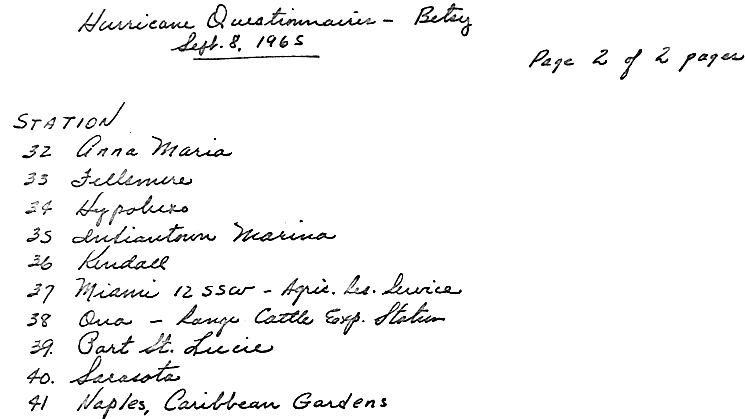 Hurricane Questionnaires - Betsy
Sept. 8, 1965
Page 2 of 2 pages
STATION
32 Anna Maria
33 Fellsmere
34 Hypoluxo
35 Indiantown Marina
36 Kendall
37 Miami 12 SSW - Agric. Res. Service
38 Ona - Range Cattle Exp. Station
39. Port St. Lucie
40. Sarasota
41 Naples, Caribbean Gardens